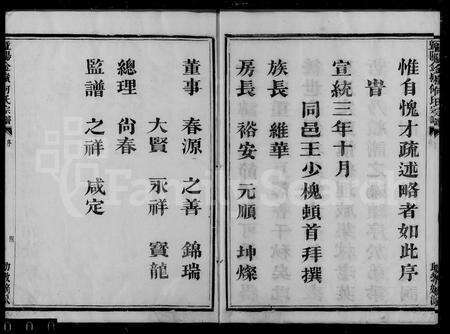 惟自愧才疏述略者如此序
旹
宣統三年十月
同邑王少槐頓首拜撰
族長 維華
房長 裕安 元順 坤燦
董事 春源 之善 錦瑞
大賢 永祥 寶龍
總理 尚春
監譜 之祥 咸定